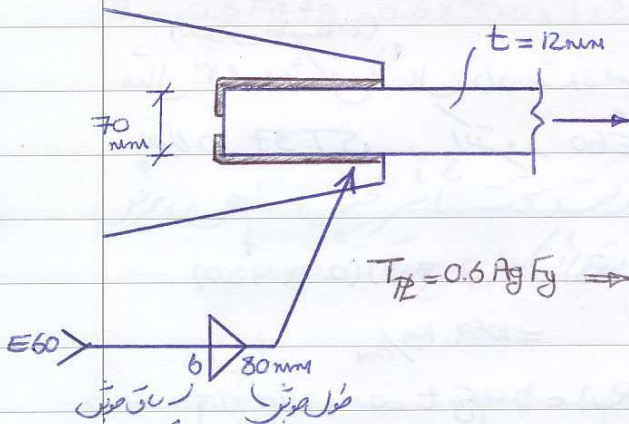 t = 12mm
70
mm
T_PL = 0.6 Ag Fy ⇒
E60
6 80mm
ساق جوش طول جوش